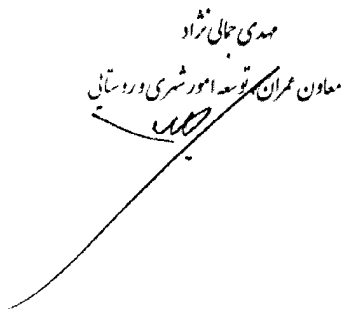 مهدی جمالی نژاد
معاون عمران توسعه امور شهری و روستایی